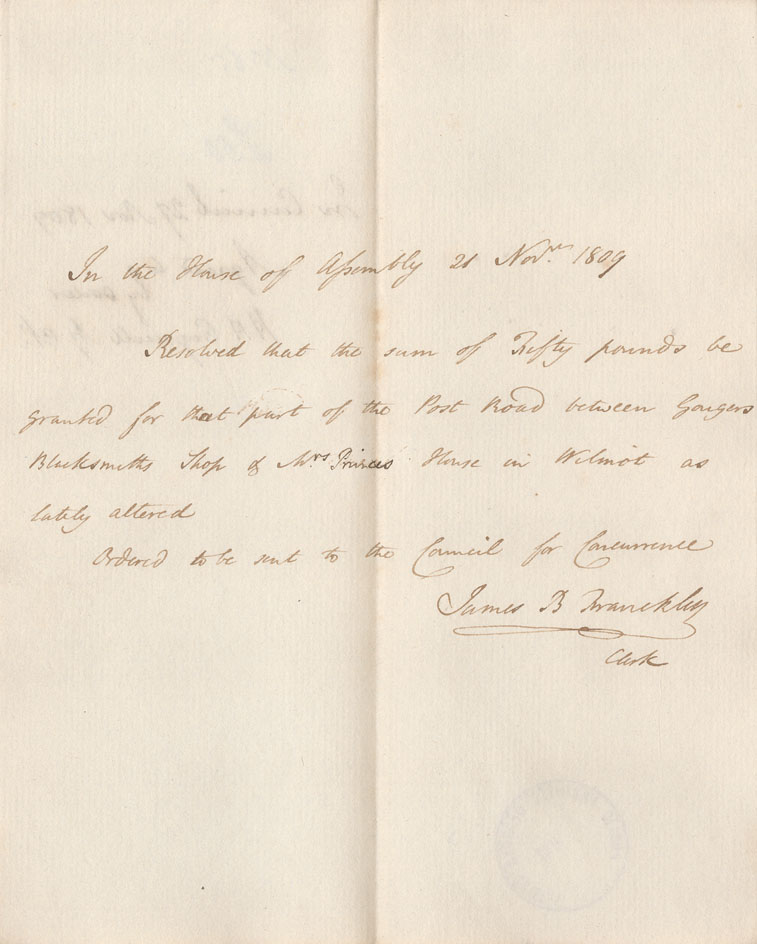 In the House of Assembly 21 Novr. 1809
Resolved that the sum of Fifty pounds be
granted for that part of the Post Road between Gougers
Blacksmiths Shop & Mrs Princes House in Wilmot as
lately altered
Ordered to be sent to the Council for Concurrence
James B Francklin
Clerk